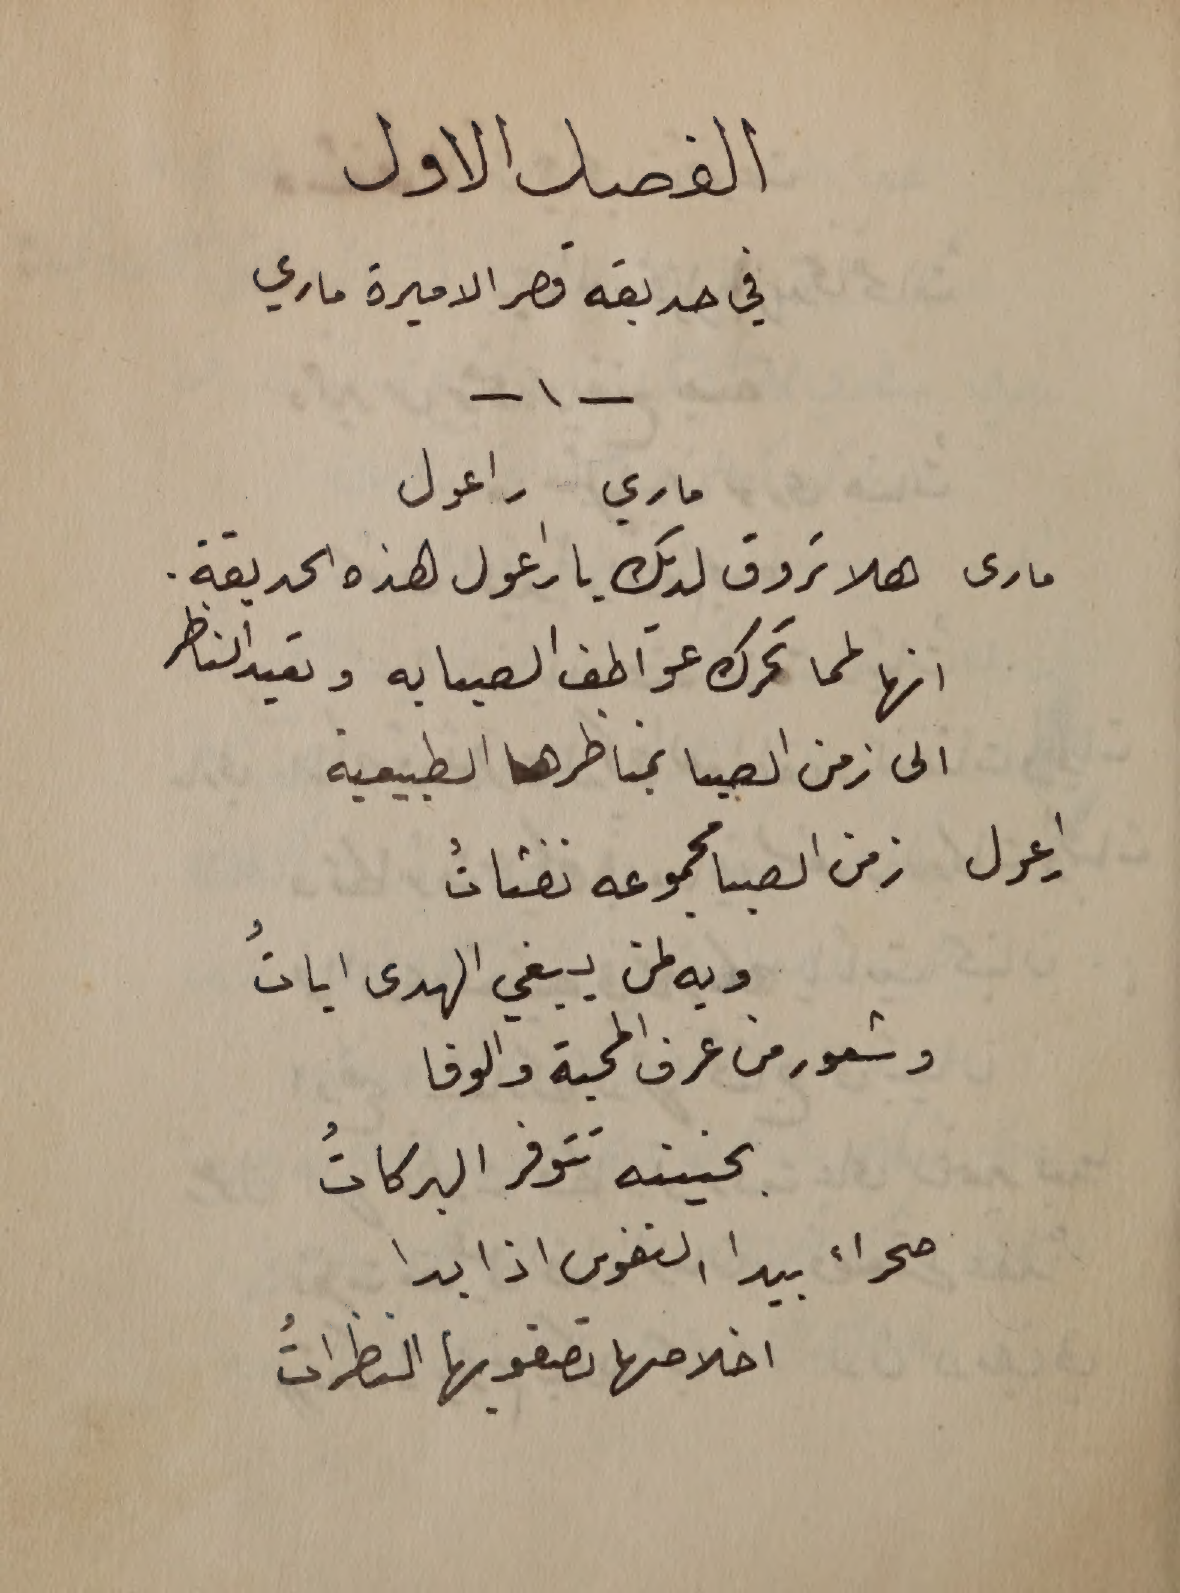 الفصل الاول
في حديقه قصر الاميرة ماري
— ١ —
ماري راعول
مارى هلا تروق لديك يا راعول هذه الحديقة .
انها لمما تحرك عواطف الصبابه وتعيد الناظر
الى زمن الصبا بمناظرها الطبيعية
راعول زمن الصبا مجموعه نفثاتُ
وبه لمن يبغي الهدى اياتُ
وشعور من عرف المحبة والوفا
بحنينه تتوفر البركاتُ
صحراء بيدا النفوس اذا بدا
اخلاصها تصفو بها النظراتُ